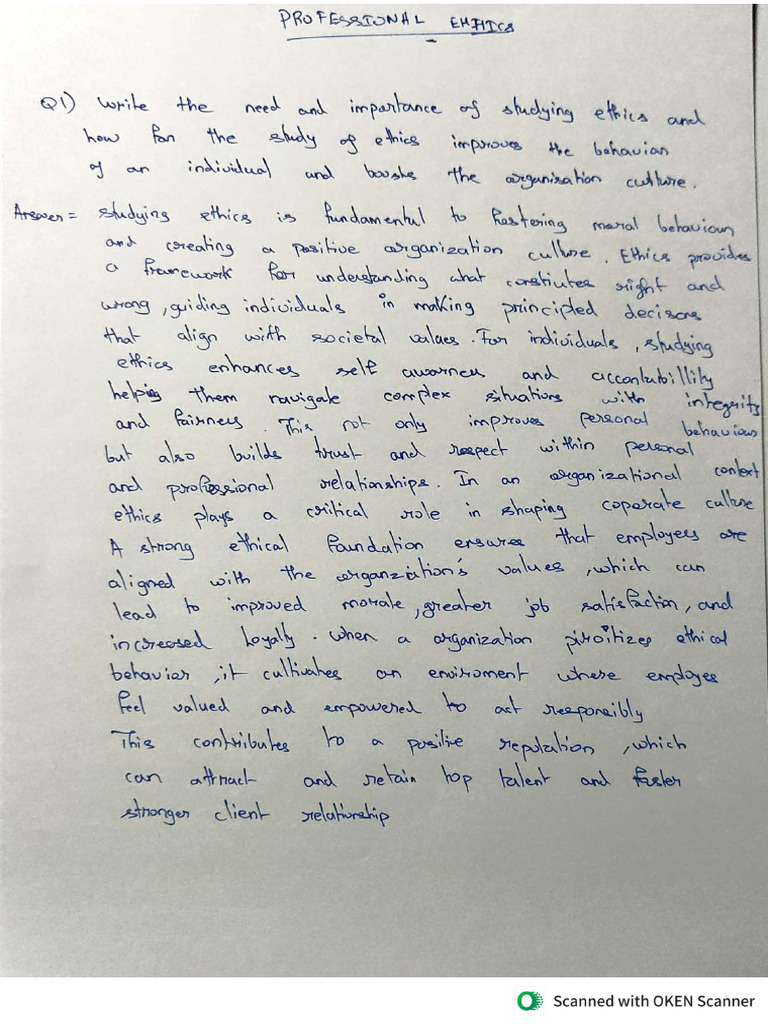 PROFESSIONAL EHTICS
Q1) Write the need and importance of studying ethics and
how far the study of ethics improves the behaviour
of an individual and boosts the organisation culture.
Answer = Studying ethics is fundamental to fostering moral behaviour
and creating a positive organization culture. Ethics provides
a framework for understanding what constiutes right and
wrong, guiding individuals in making principled decisons
that align with societal values. For individuals, studying
ethics enhances self awarness and accontabillity
helping them navigate complex situations with integrity
and fairness. This not only improves personal behaviour
but also builds trust and respect within personal
and professional relationships. In an organizational context
ethics plays a critical role in shaping coperate culture
A strong ethical foundation ensures that employees are
aligned with the organzation's values, which can
lead to improved morale, greater job satisfaction, and
increased loyalty. When a organization piroitizes ethical
behavior, it cultivates an enviroment where employee
feel valued and empowered to act responsibly
This contributes to a positive reputation, which
can attract and retain top talent and foster
stronger client relationship
Scanned with OKEN Scanner